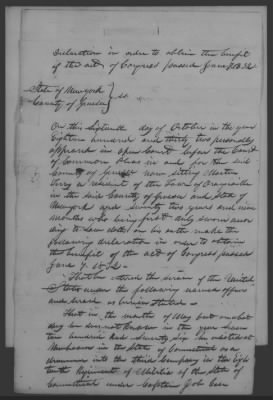 Declaration in order to obtain the benefit
of the act of Congress passed June 7. 1832
State of New york
County of Genesee } ss
On this Sixteenth day of October in the year
Eighteen hundred and thirty two personally
appeared in open Court before the Court
of Common Pleas in and for the said
County of Genesee now sitting
a resident of the Town of Orangeville
in the said County of Genesee and State of
New york aged seventy two years and nine
months who being first duly sworn accor
ding to law doth on his oath make the
following declaration in order to obtain
the benefit of the act of Congress passed
June 7. 1832
That he entered the service of the United
States under the following named officers
and served as herein stated
That in the month of May but on what
day he does not know in the year seven
teen hundred and seventy six he enlisted at
in the State of Connecticut as a
drummer into the third Company in the
Regiment of Militia of the State of
Connecticut under Captain Job Case